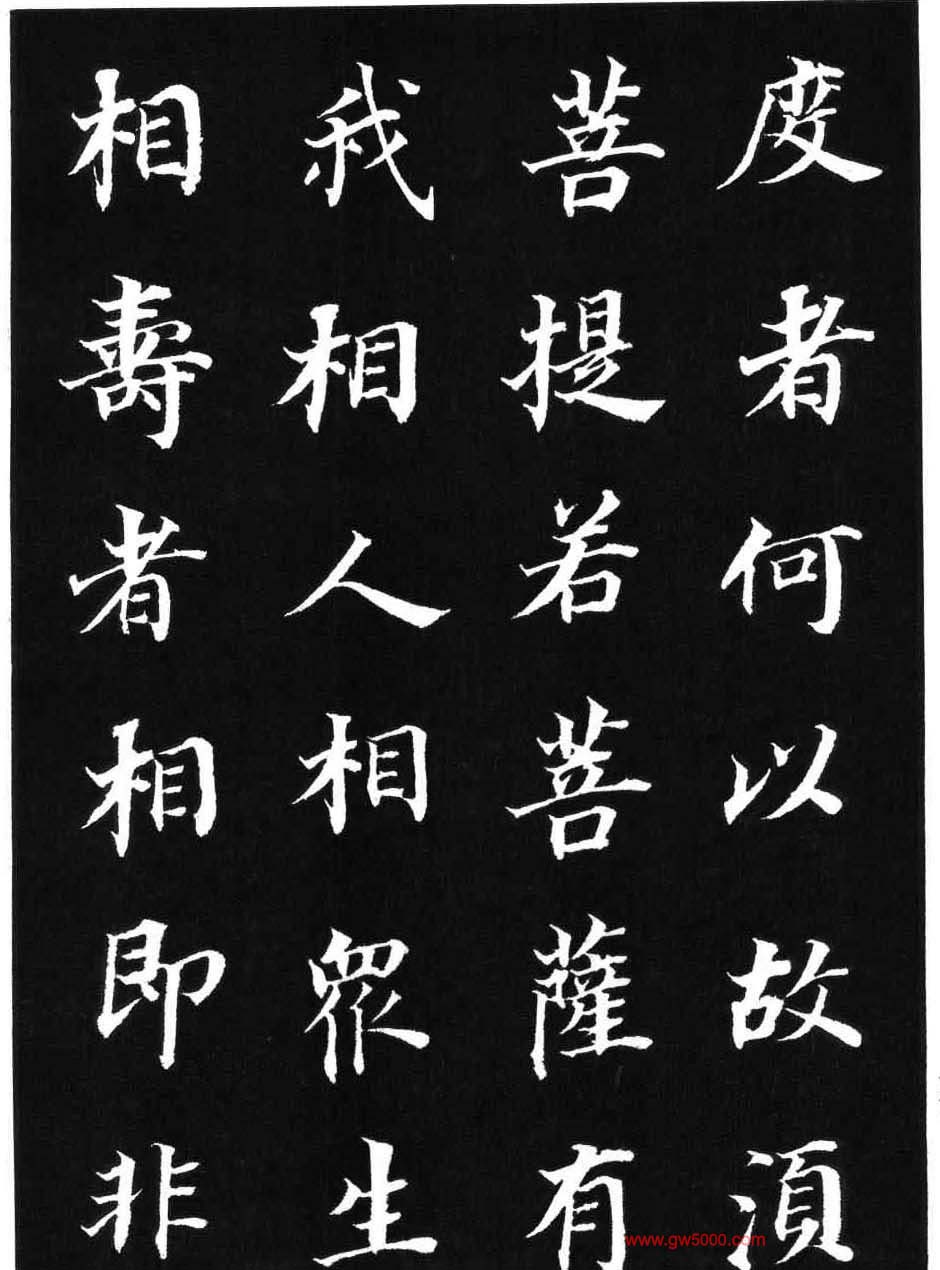 度者何以故須
菩提若菩薩有
我相人相眾生
相壽者相即非
www.gw5000.com